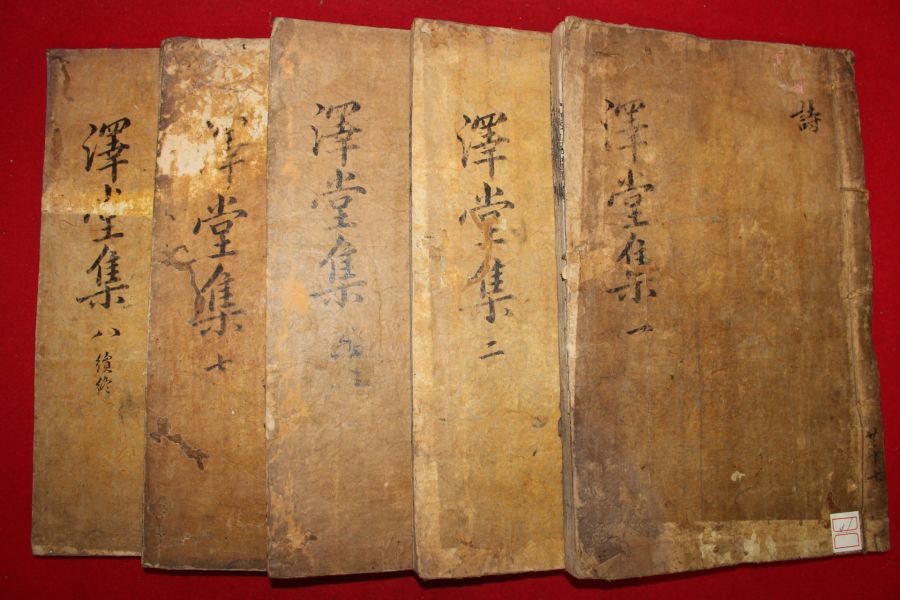 詩
澤堂集 一
澤堂集 二
澤堂集
堂集 七
澤堂集 八 續終